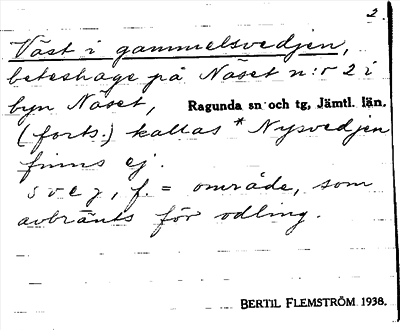 2.
Väst i gammelsvedjen,
beteshage på Näset n:r 2 i
byn Näset, Ragunda sn och tg, Jämtl. län.
(forts.) kallas * Nysvedjen
finns ej.
svej, f. = område, som
avbränts för odling.
BERTIL FLEMSTRÖM 1938.